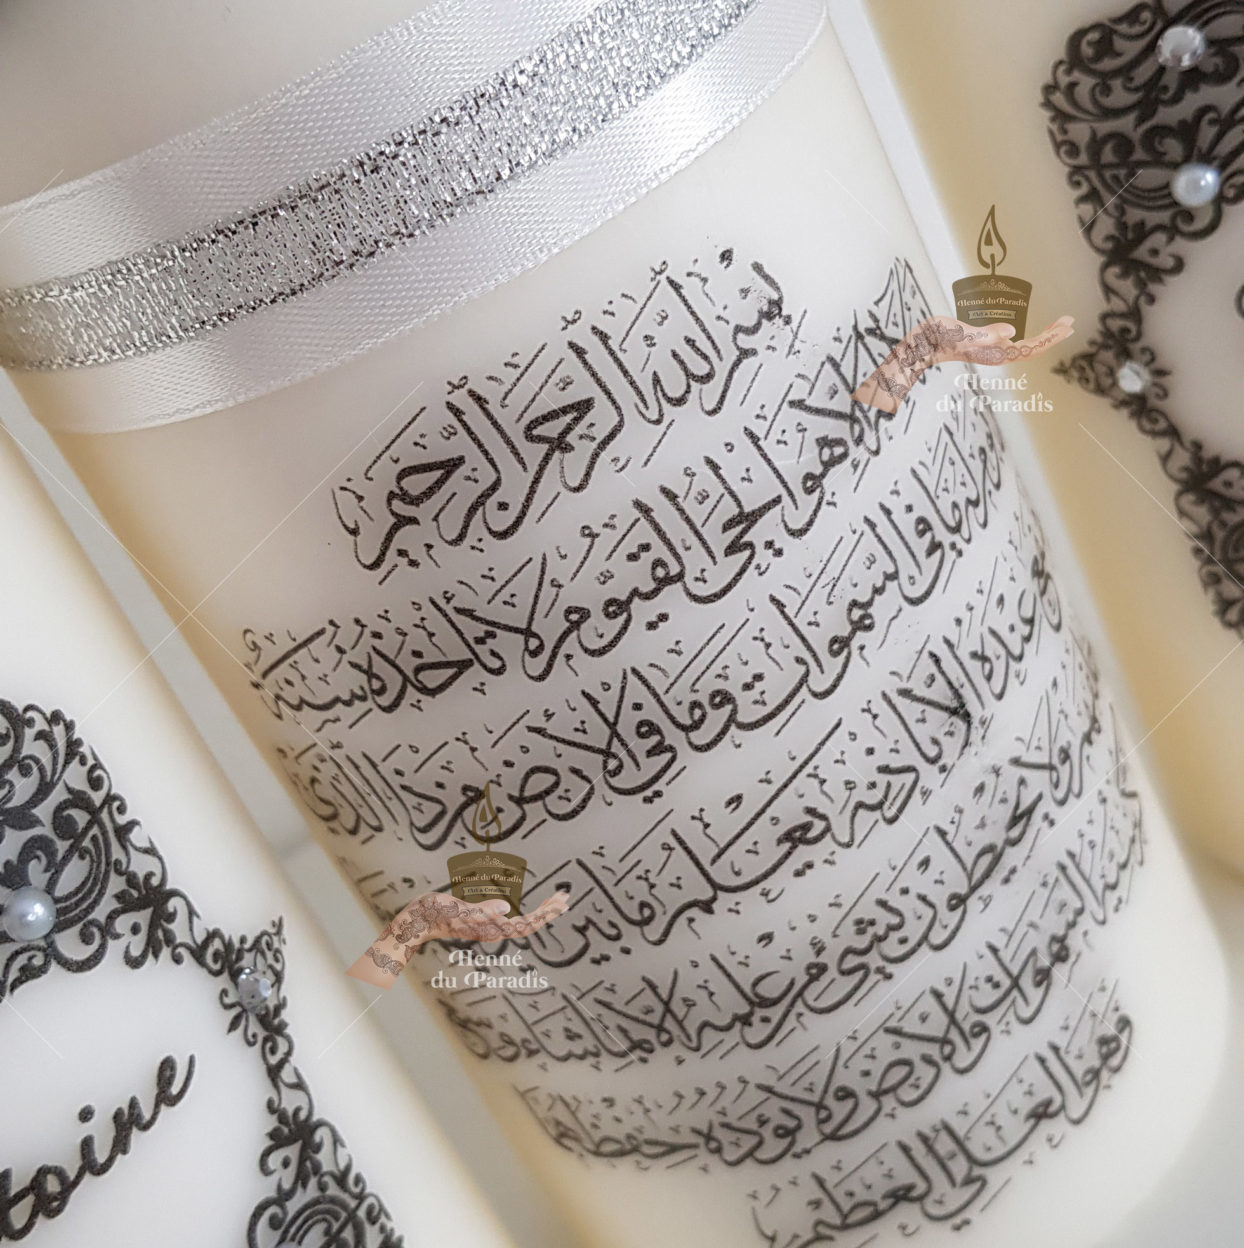 بسم الله الرحمن الرحيم
الله لا إله إلا هو الحي القيوم لا تأخذه سنة
في السموات وما في الأرض من ذا الذي
عنده إلا بإذنه يعلم ما بين
ولا يحيطون بشيء من علمه إلا بما شاء
السموات والأرض ولا يؤده حفظهما
وهو العلي العظيم
toine
Henné du Paradis
Art & Création
Henné
du Paradis
Henné du Paradis
Art & Création
Henné
du Paradis